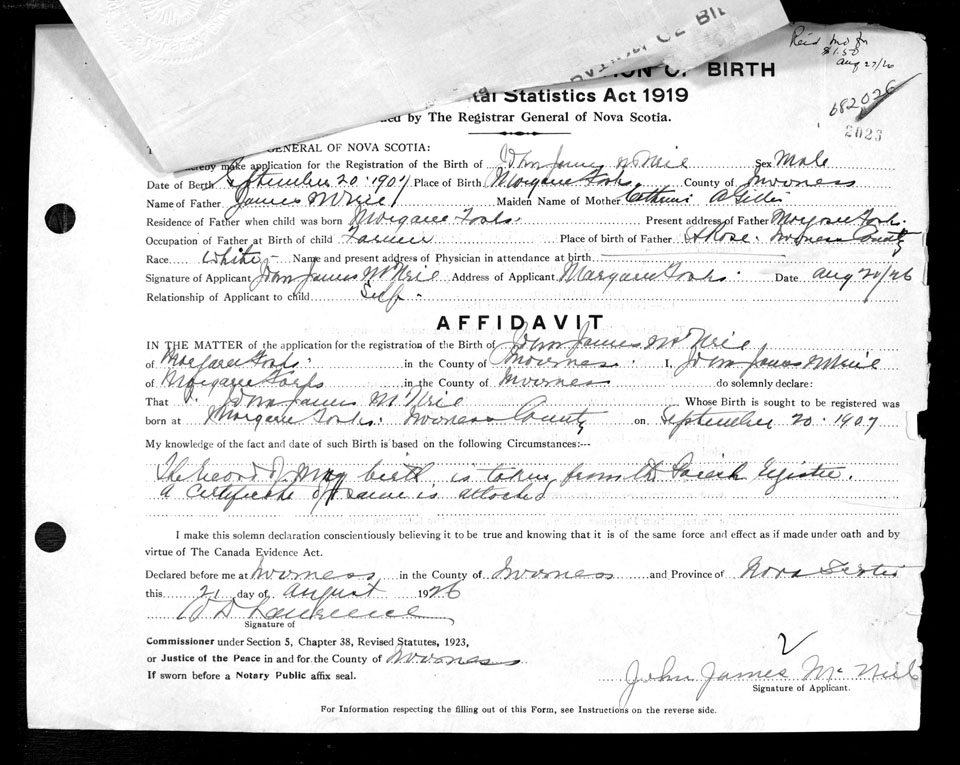 Aug 27/26
$1.50
682026
2026
OF BIRTH
Statistics Act 1919
by The Registrar General of Nova Scotia.
GENERAL OF NOVA SCOTIA:
hereby make application for the Registration of the Birth of John James McNeil Sex Male
Date of Berth September 20. 1907 Place of Birth Margaree Forks. County of Inverness
Name of Father James McNeil Maiden Name of Mother A Gillis
Residence of Father when child was born Margaree Forks. Present address of Father Margaree Forks.
Occupation of Father at Birth of child Farmer Place of birth of Father St Rose. Inverness County
Race White Name and present address of Physician in attendance at birth
Signature of Applicant John James McNeil Address of Applicant Margaree Forks. Date Aug 20/26
Relationship of Applicant to child Self.
AFFIDAVIT
IN THE MATTER of the application for the registration of the Birth of John James McNeil
of Margaree Forks. in the County of Inverness. I, John James McNeil
of Margaree Forks in the County of Inverness do solemnly declare:
That John James McNeil Whose Birth is sought to be registered was
born at Margaree Forks. Inverness County on September 20. 1907
My knowledge of the fact and date of such Birth is based on the following Circumstances:--
The Record of my birth is taken from the Parish Register.
A certificate of same is attached
I make this solemn declaration conscientiously believing it to be true and knowing that it is of the same force and effect as if made under oath and by
virtue of The Canada Evidence Act.
Declared before me at Inverness in the County of Inverness and Province of Nova Scotia
this 21 day of August 1926
D Lawrence
Signature of
Commissioner under Section 5, Chapter 38, Revised Statutes, 1923,
or Justice of the Peace in and for the County of Inverness
If sworn before a Notary Public affix seal.
John James McNeil
Signature of Applicant.
For Information respecting the filling out of this Form, see Instructions on the reverse side.